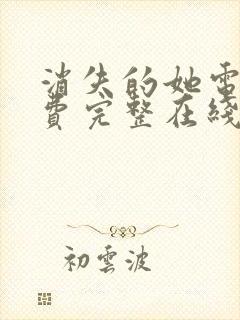 消失的她電
費完整在綫
初雲波